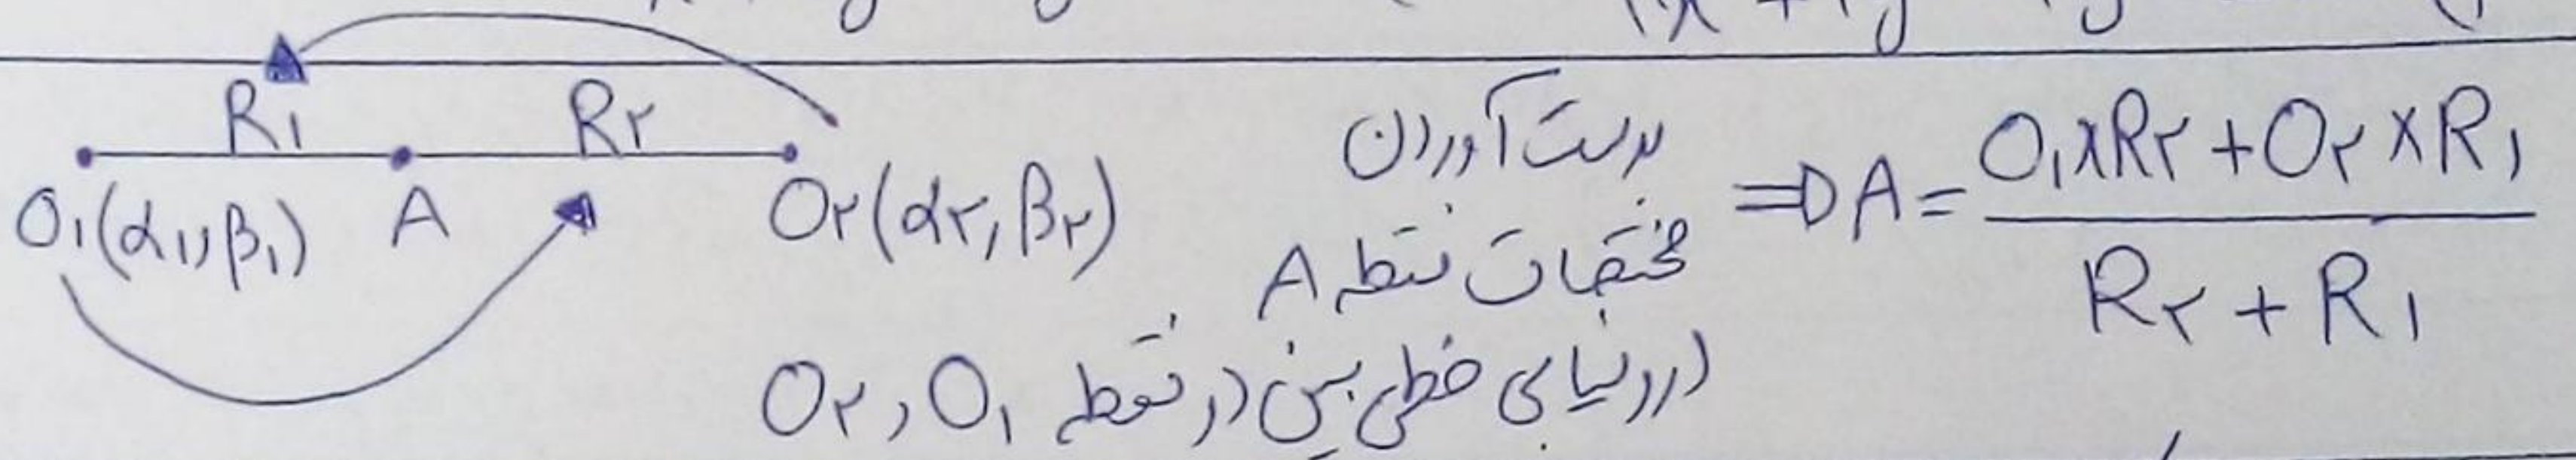 R₁ R۲
O₁(α₁,β₁) A O۲(α۲,β۲)
بدست آوردن
مختصات نقطه A
(درونیابی خطی بین دو نقطه O₁ و O۲
⇒ A = (O₁×R۲ + O۲×R₁) / (R۲ + R₁)